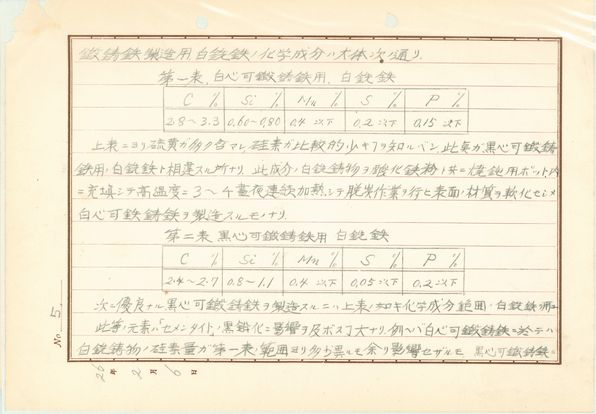 鍛鋳鉄製造用白銑鉄ノ化学成分ハ大体次ノ通リ
第一表 白心可鍛鋳鉄用 白銑鉄
C % Si % Mn % S % P %
2.8~3.3 0.60~0.80 0.4以下 0.2以下 0.15以下
上表ニヨリ硫黄が多ク含マレ硅素が比較的少キヲ知ルベシ 此点が黒心可鍛鋳
鉄用白銑鉄ト相違スル所ナリ 此成分ノ白銑鋳物ヲ酸化鉄粉ト共ニ焼鈍用ポット内
ニ充填シテ高温度ニ3~4昼夜連続加熱シテ脱炭作業ヲ行ヒ表面ノ材質ヲ軟化セシメ
白心可鍛鋳鉄ヲ製造スルモノナリ
第二表 黒心可鍛鋳鉄用 白銑鉄
C % Si % Mn % S % P %
2.4~2.7 0.8~1.1 0.4以下 0.05以下 0.2以下
次ニ優良ナル黒心可鍛鋳鉄ヲ製造スルニハ上表ノ如キ化学成分範囲ノ白銑鉄
此等ノ元素ハセメンタイトノ黒鉛化ニ影響ヲ及ボス丁大ナリ 例ヘバ白心可鍛鋳鉄ニ於テハ
白銑鋳物ノ硅素量が第一表ノ範囲ヨリ多少異ルモ余リ影響セザルモ 黒心可鍛鋳鉄ニ
No 5
26年 2月 6日